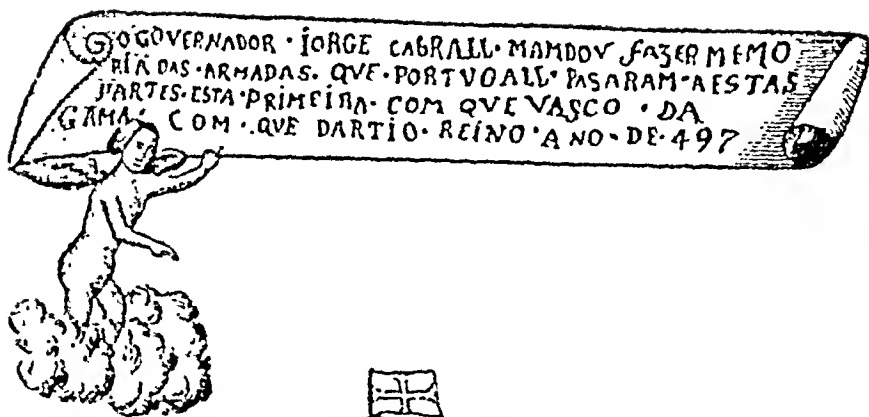 O GOVERNADOR · IORGE CABRALL · MAMDOV fAZER MEMO
RIA DAS · ARMADAS · QVE · PORTVOALL · PASARAM · A ESTAS
PARTES · ESTA · PRIMEIRA · COM QVE VASCO · DA
GAMA · COM · QVE DARTIO · REINO · ANO · DE · 497